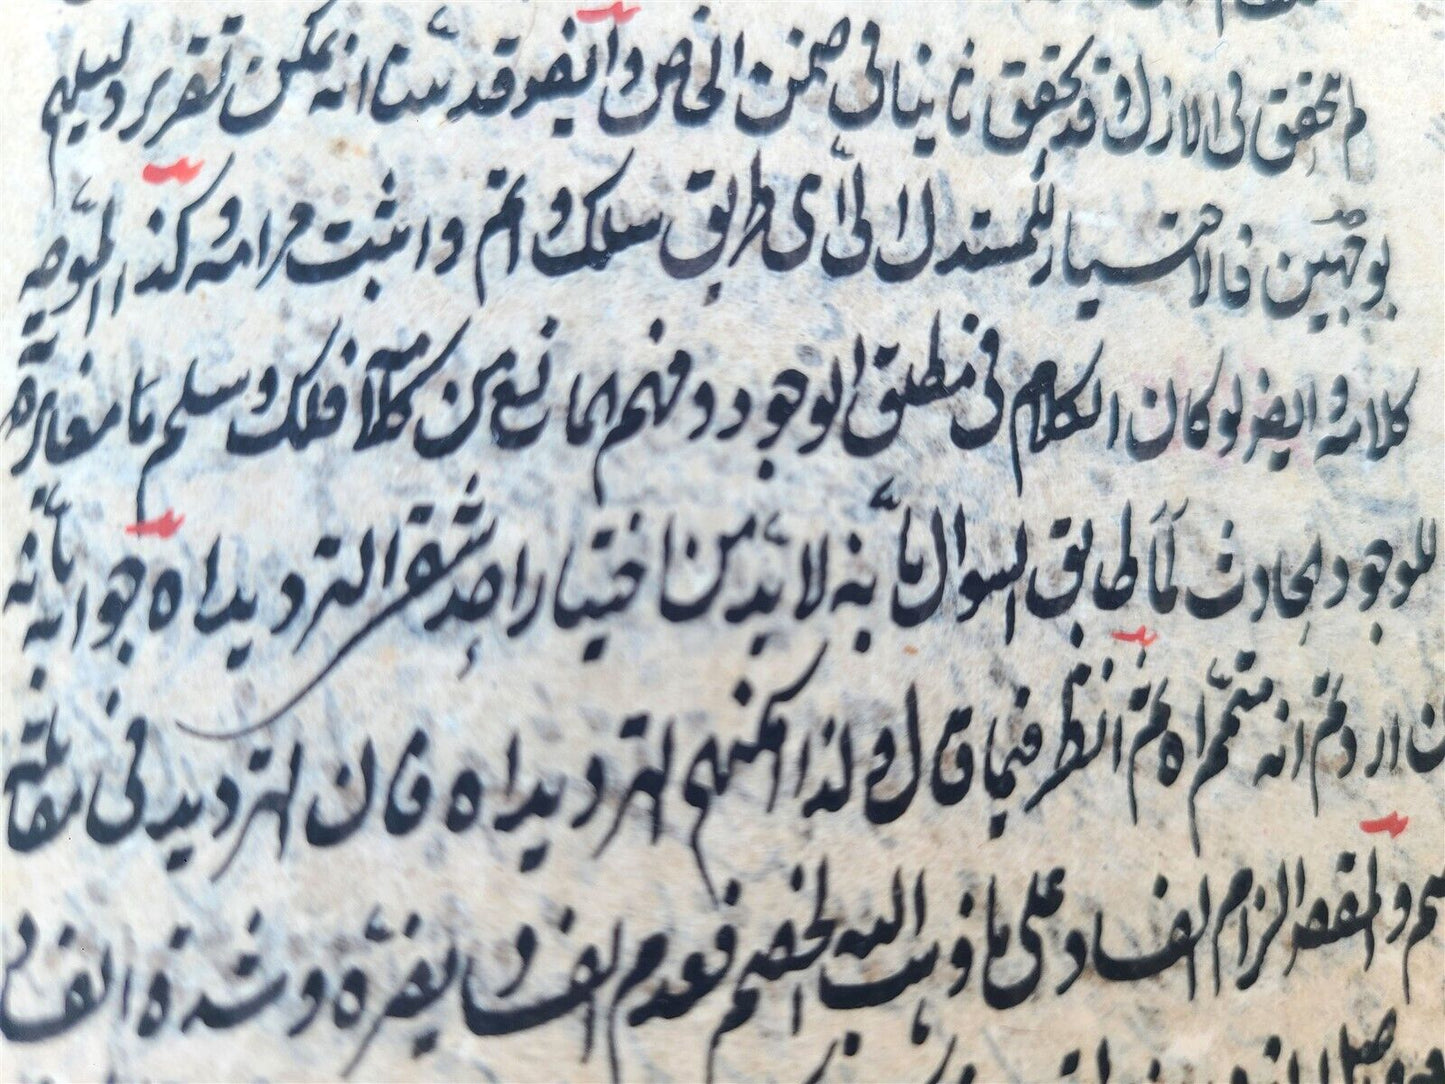 لم يتحقق في الازل وقد يتحقق ثانيا في ضمن الخاص وايضو قد بينا انه يمكن تقرير دليلهم
بوجهين فالاختيار للمستدل الى اى طريق سلك وتم واثبت مرامه وكذا الموجه
كلامه وايضو لو كان الكلام في مطلق الوجود وفهم المانع من كلامك ذلك وسلم مغايرة
للوجود الحادث لما طابق السوال بانه لا بد من اختيار احد شقى الترديد اه جوابه بانه
ان اردتم انه متمم اه ثم انظر فيما قال ولذا يمكنهم الترديد اه فان الترديد في مقابلة
والمقصو الزام الفساد على ما ذهب اليه الخصم فعدم الفساد يضره وشدة الفساد